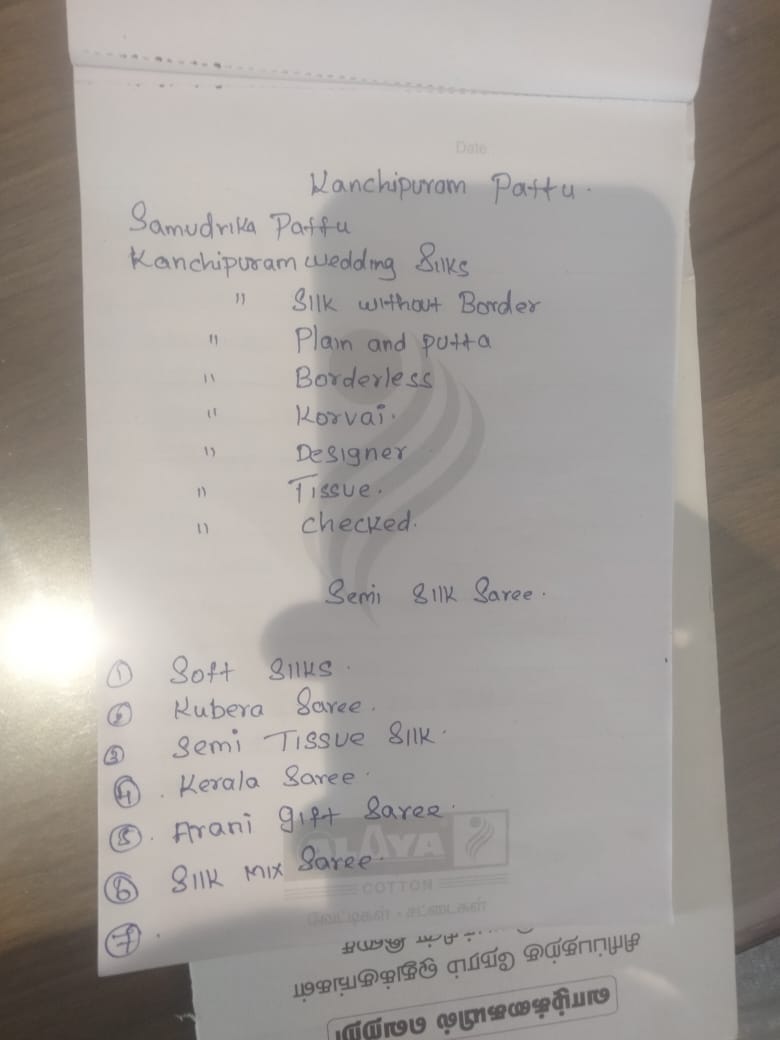 Date
Kanchipuram Pattu.
Samudrika Pattu
Kanchipuram wedding Silks
" Silk without Border
" Plain and putta
" Borderless
" Korvai.
" Designer
" Tissue.
" checked.
Semi Silk Saree.
① Soft Silks.
② Kubera Saree.
③ Semi Tissue Silk.
④. Kerala Saree.
⑤. Arani gift Saree.
⑥ Silk Mix Saree.
⑦.
ALAYA
COTTON
வேட்டிகள் - சட்டைகள்
சிரிப்பதற்கு நேரம் ஒதுக்குங்கள்
வாழ்க்கையில் வெற்றி